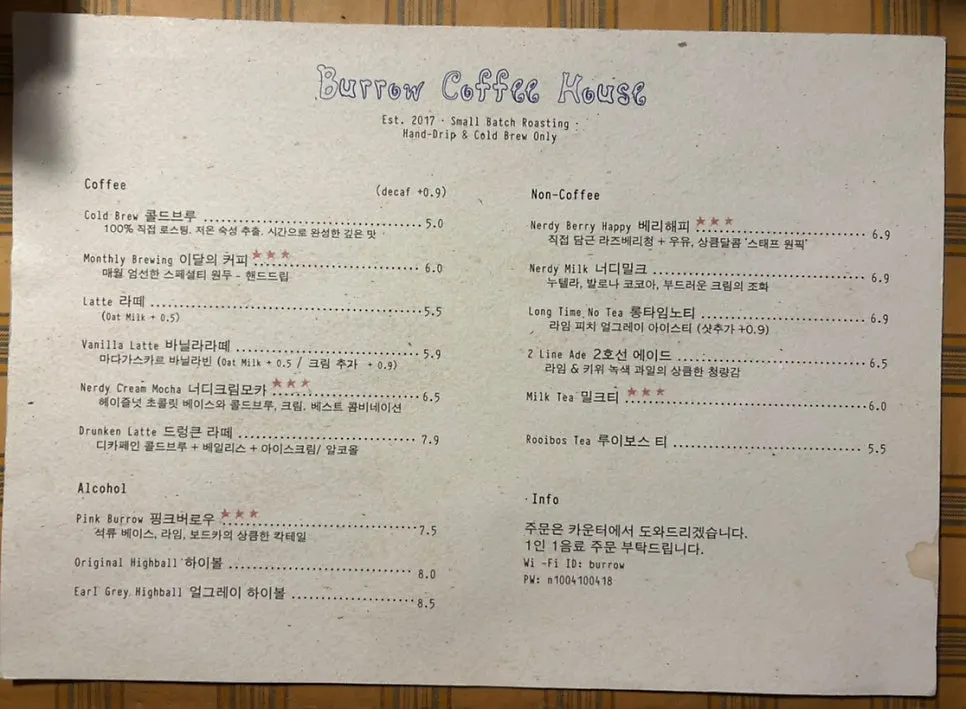 Burrow Coffee House
Est. 2017 · Small Batch Roasting ·
Hand-Drip & Cold Brew Only
Coffee (decaf +0.9)
Cold Brew 콜드브루 5.0
100% 직접 로스팅. 저온 숙성 추출. 시간으로 완성한 깊은 맛
Monthly Brewing 이달의 커피 ★★★ 6.0
매월 엄선한 스페셜티 원두 - 핸드드립
Latte 라떼 5.5
(Oat Milk + 0.5)
Vanilla Latte 바닐라라떼 5.9
마다가스카르 바닐라빈 (Oat Milk + 0.5 / 크림 추가 + 0.9)
Nerdy Cream Mocha 너디크림모카 ★★★ 6.5
헤이즐넛 초콜릿 베이스와 콜드브루, 크림. 베스트 콤비네이션
Drunken Latte 드렁큰 라떼 7.9
디카페인 콜드브루 + 베일리스 + 아이스크림/ 알코올
Alcohol
Pink Burrow 핑크버로우 ★★★ 7.5
석류 베이스, 라임, 보드카의 상큼한 칵테일
Original Highball 하이볼 8.0
Earl Grey Highball 얼그레이 하이볼 8.5
Non-Coffee
Nerdy Berry Happy 베리해피 ★★★ 6.9
직접 담근 라즈베리청 + 우유, 상큼달콤 '스태프 원픽'
Nerdy Milk 너디밀크 6.9
누텔라, 발로나 코코아, 부드러운 크림의 조화
Long Time No Tea 롱타임노티 6.9
라임 피치 얼그레이 아이스티 (샷추가 +0.9)
2 Line Ade 2호선 에이드 6.5
라임 & 키위 녹색 과일의 상큼한 청량감
Milk Tea 밀크티 ★★★ 6.0
Rooibos Tea 루이보스 티 5.5
· Info
주문은 카운터에서 도와드리겠습니다.
1인 1음료 주문 부탁드립니다.
Wi -Fi ID: burrow
PW: n1004100418